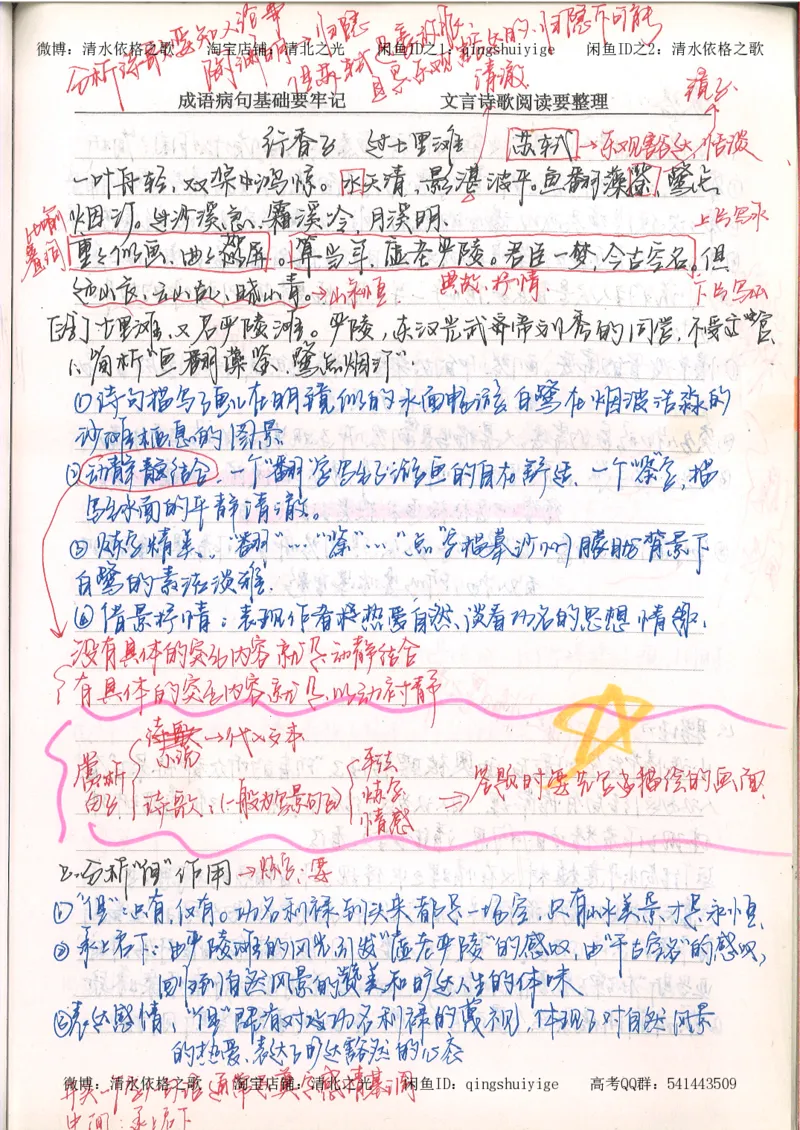 分析诗歌要知人论世
陶渊明 归隐
但苏轼是
微博：清水依格之歌 淘宝店铺：清北之光 闲鱼ID之1：qingshuiyige 闲鱼ID之2：清水依格之歌
清澈
成语病句基础要牢记 文言诗歌阅读要整理
镜子
行香子 过七里滩 苏轼→乐观豁达,恬淡
一叶舟轻,双桨鸿惊。水天清,影湛波平。鱼翻藻鉴,鹭点
烟汀。过沙溪急,霜溪冷,月溪明。
上片写水
重重似画,曲曲如屏。算当年,虚老严陵。君臣一梦,今古空名。但
典故,抒情
下片写山
远山长,云山乱,晓山青。
[注]七里滩,又名严陵滩。严陵,东汉光武帝刘秀的同学,不受官
1、简析“鱼翻藻鉴,鹭点烟汀”.
①诗句描写了鱼儿在明镜似的水面畅游,白鹭在烟波浩淼的
沙洲栖息的图景
②动静结合,一个“翻”字写出了游鱼的自在舒适,一个“鉴”字,描
写出水面的平静清澈。
③炼字精美 “翻”…“鉴”…“点”字描摹沙洲朦胧背景下
白鹭的素洁淡雅.
④借景抒情:表现作者热爱自然、淡看功名的思想情趣.
没有具体的突出内容就是动静结合
有具体的突出内容就是以动衬静
赏析句子
小说→
诗歌:(一般为写景的句子)
手法
炼字
情感
⇒答题时要先写出描绘的画面
2、分析“但”作用→炼字:要
①“但”:只有,仅有。功名利禄到头来都是一场空,只有山水美景才是永恒
②承上启下:由严陵滩的风光引发“虚老严陵”的感叹,由“今古空名”的感叹,
回到对自然风景的赞美和旷达人生的体味
③表达感情,“但”既有对功名利禄的蔑视,体现了对自然风景
的热爱,表达了旷达豁然的心态
微博：清水依格之歌 淘宝店铺：清北之光 闲鱼ID：qingshuiyige 高考QQ群：541443509
中间:承上启下